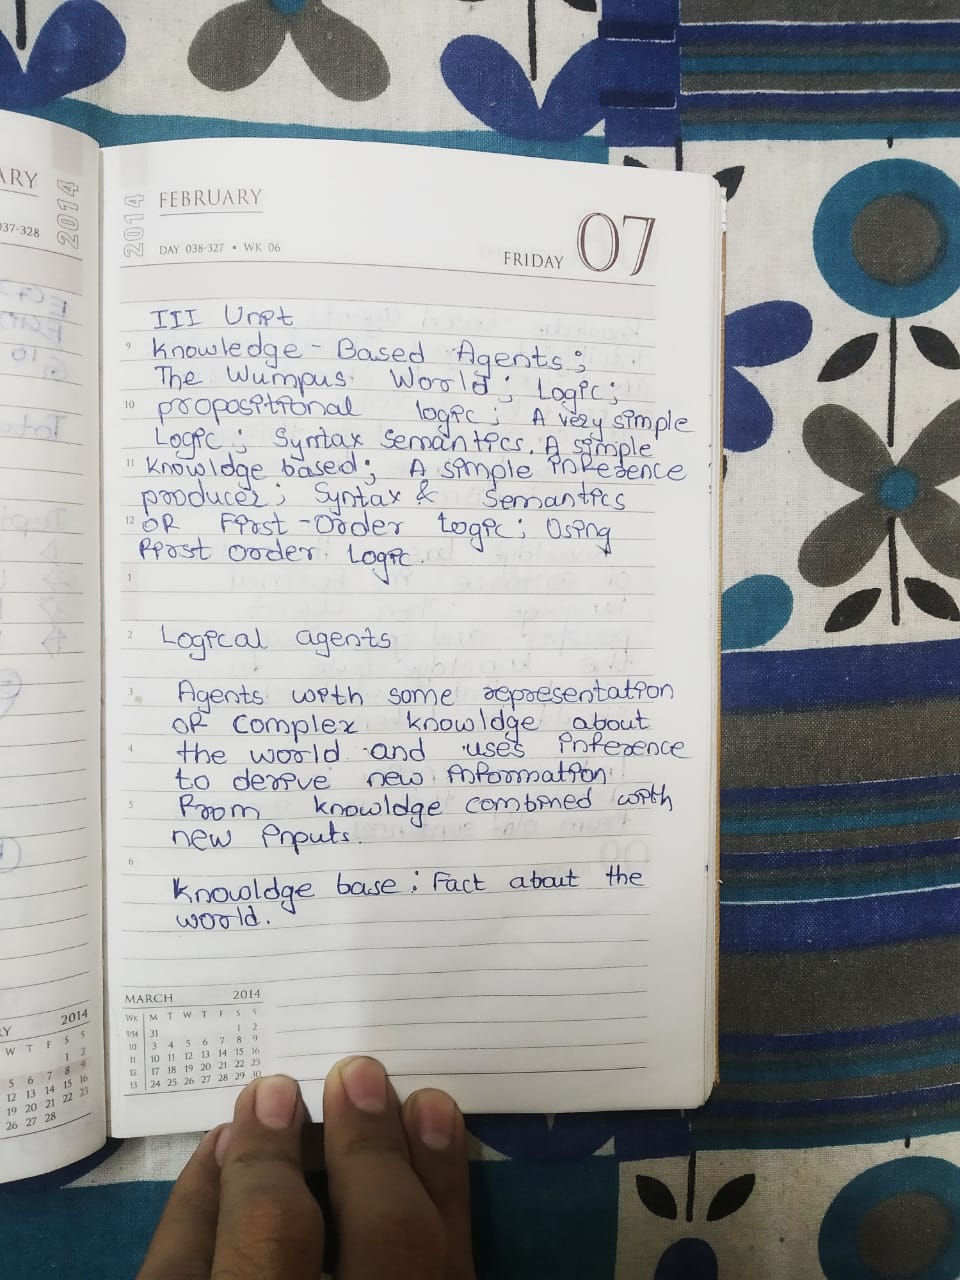 ARY
2014
037-328
2014
FEBRUARY
DAY 038-327 • WK 06
FRIDAY 07
III Unit
9 Knowledge - Based Agents;
The Wumpus World; Logic;
10 propositional logic; A very simple
Logic; Syntax semantics. A simple
11 Knowldge based; A simple inference
producer; Syntax & Semantics
12 OF First - Order Logic; Using
First Order Logic.
1
2 Logical agents
3 Agents with some representation
OF complex knowldge about
4 the world and uses inference
to derive new information
5 From knowldge combined with
new inputs.
6
Knowldge base : Fact about the
world.
MARCH 2014
WK M T W T F S S
9/14 31 1 2
10 3 4 5 6 7 8 9
11 10 11 12 13 14 15 16
12 17 18 19 20 21 22 23
13 24 25 26 27 28 29 30
RY 2014
W T F S S
1 2
5 6 7 8 9
12 13 14 15 16
19 20 21 22 23
26 27 28